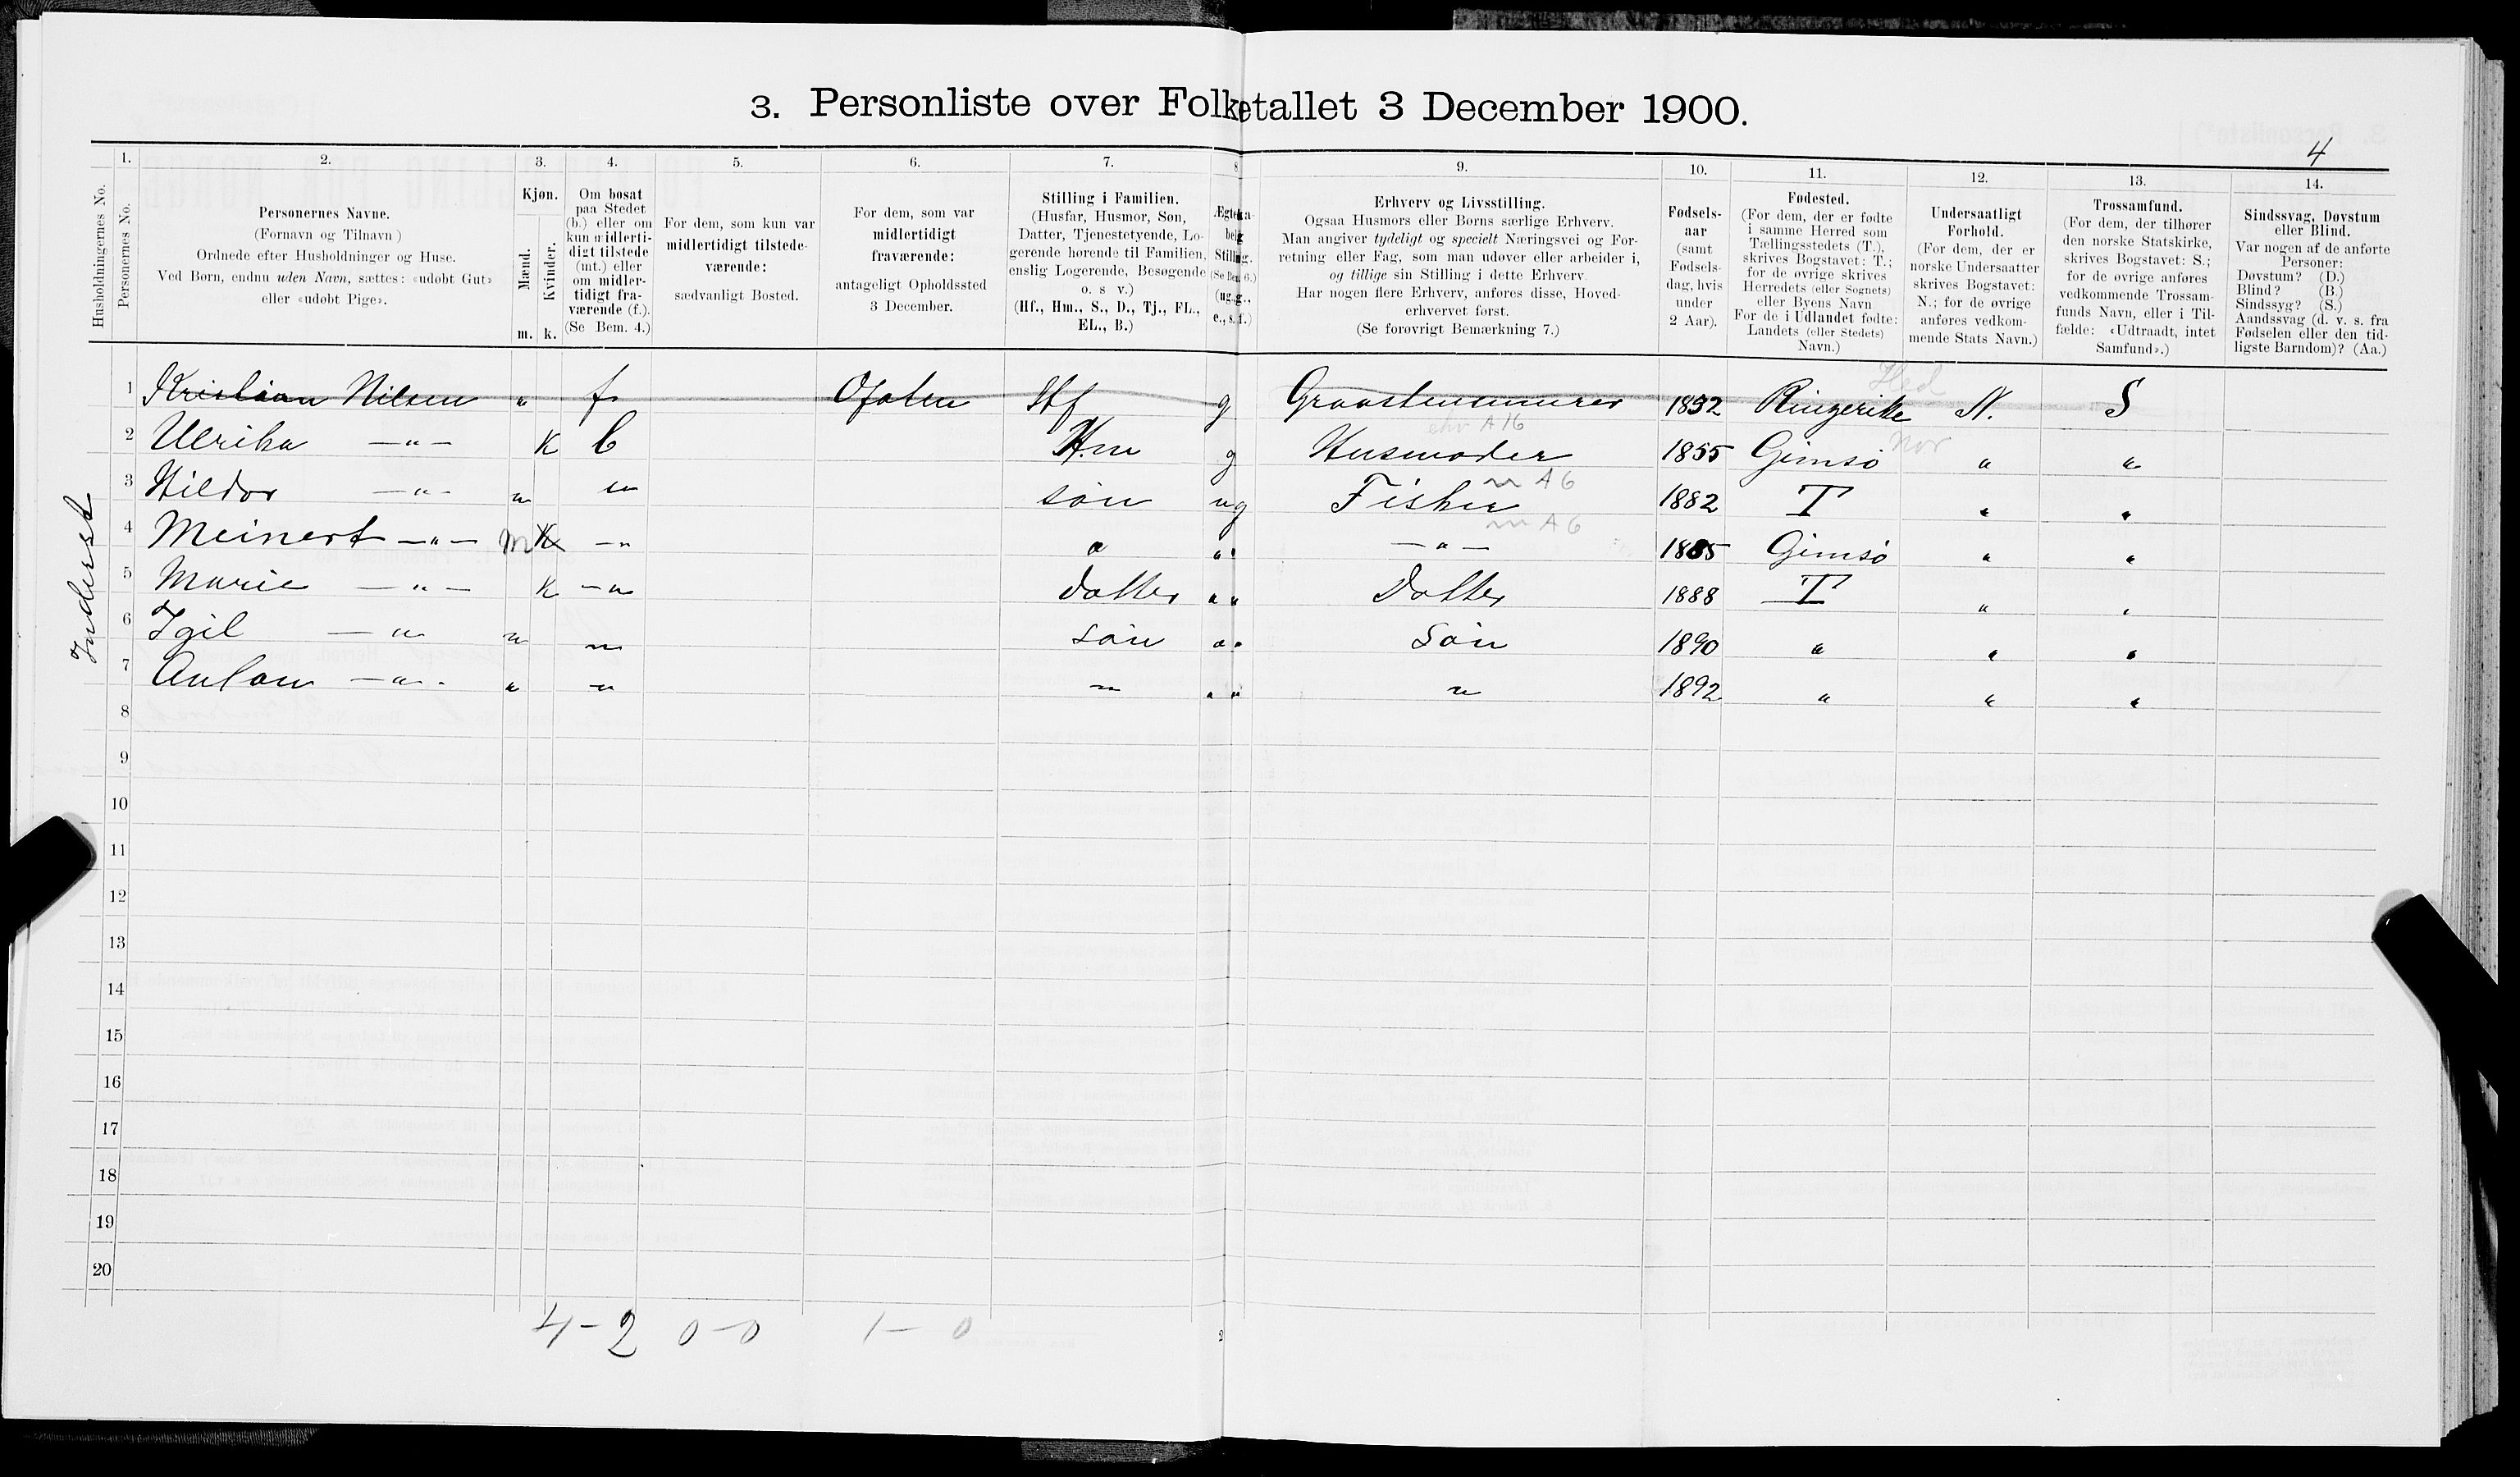 3. Personliste over Folketallet 3 December 1900.
4
1. 2. 3. 4. 5. 6. 7. 8 9. 10. 11. 12. 13. 14.
Husholdningernes No.
Personernes No.
Personernes Navne.
(Fornavn og Tilnavn)
Ordnede efter Husholdninger og Huse.
Ved Børn, endnu uden Navn, sættes: «udøbt Gut»
eller «udøbt Pige».
Kjøn.
Mænd.
Kvinder.
m. k.
Om bosat
paa Stedet
(b.) eller om
kun midlerti-
digt tilstede
(mt.) eller
om midler-
tidigt fra-
værende (f.).
(Se Bem. 4.)
For dem, som kun var
midlertidigt tilstede-
værende:
sædvanligt Bosted.
For dem, som var
midlertidigt
fraværende:
antageligt Opholdssted
3 December.
Stilling i Familien.
(Husfar, Husmor, Søn,
Datter, Tjenestetyende, Lo-
gerende hørende til Familien,
enslig Logerende, Besøgende
o. s v.)
(Hf., Hm., S., D., Tj., FL.,
EL., B.)
Ægteska-
belig
Stilling.
(Se Bem. 6.)
(ug., g.,
e., s., f.)
Erhverv og Livsstilling.
Ogsaa Husmors eller Børns særlige Erhverv.
Man angiver tydeligt og specielt Næringsvei og For-
retning eller Fag, som man udøver eller arbeider i,
og tillige sin Stilling i dette Erhverv.
Har nogen flere Erhverv, anføres disse, Hoved-
erhvervet først.
(Se forøvrigt Bemærkning 7.)
Fødsels-
aar
(samt
Fødsels-
dag, hvis
under
2 Aar).
Fødested.
(For dem, der er fødte
i samme Herred som
Tællingsstedets (T.),
skrives Bogstavet: T.;
for de øvrige skrives
Herredets (eller Sognets)
eller Byens Navn
For de i Udlandet fødte:
Landets (eller Stedets)
Navn.)
Undersaatligt
Forhold.
(For dem, der er
norske Undersaatter
skrives Bogstavet:
N.; for de øvrige
anføres vedkom-
mende Stats Navn.)
Trossamfund.
(For dem, der tilhører
den norske Statskirke,
skrives Bogstavet: S.;
for de øvrige anføres
vedkommende Trossam-
funds Navn, eller i Til-
fælde: «Udtraadt, intet
Samfund».)
Sindssvag, Døvstum
eller Blind.
Var nogen af de anførte
Personer:
Døvstum? (D.)
Blind? (B.)
Sindssyg? (S.)
Aandssvag (d. v. s. fra
Fødselen eller den tid-
ligste Barndom)? (Aa.)
Inderst
Hed
1 Kristian Nilsen " f. Ofoten Hf g Graastensmurer 1852 Ringerike N. S
A 16 Nor
2 Ulrika —"— K b Hm g Husmoder 1855 Gimsø " "
A 6
3 Hildor —"— " " søn ug Fisker 1882 T " "
A 6
4 Meinert —"— m K —" " " " —"— 1885 Gimsø " "
5 Marie —"— K —" datter " " Datter 1888 T " "
6 Igil —"— " " søn " " Søn 1890 " " "
7 Anton —"— " " " " " " 1892 " " "
8
9
10
11
12
13
14
15
16
17
18
19
20
4-2 0-0 1-0
2